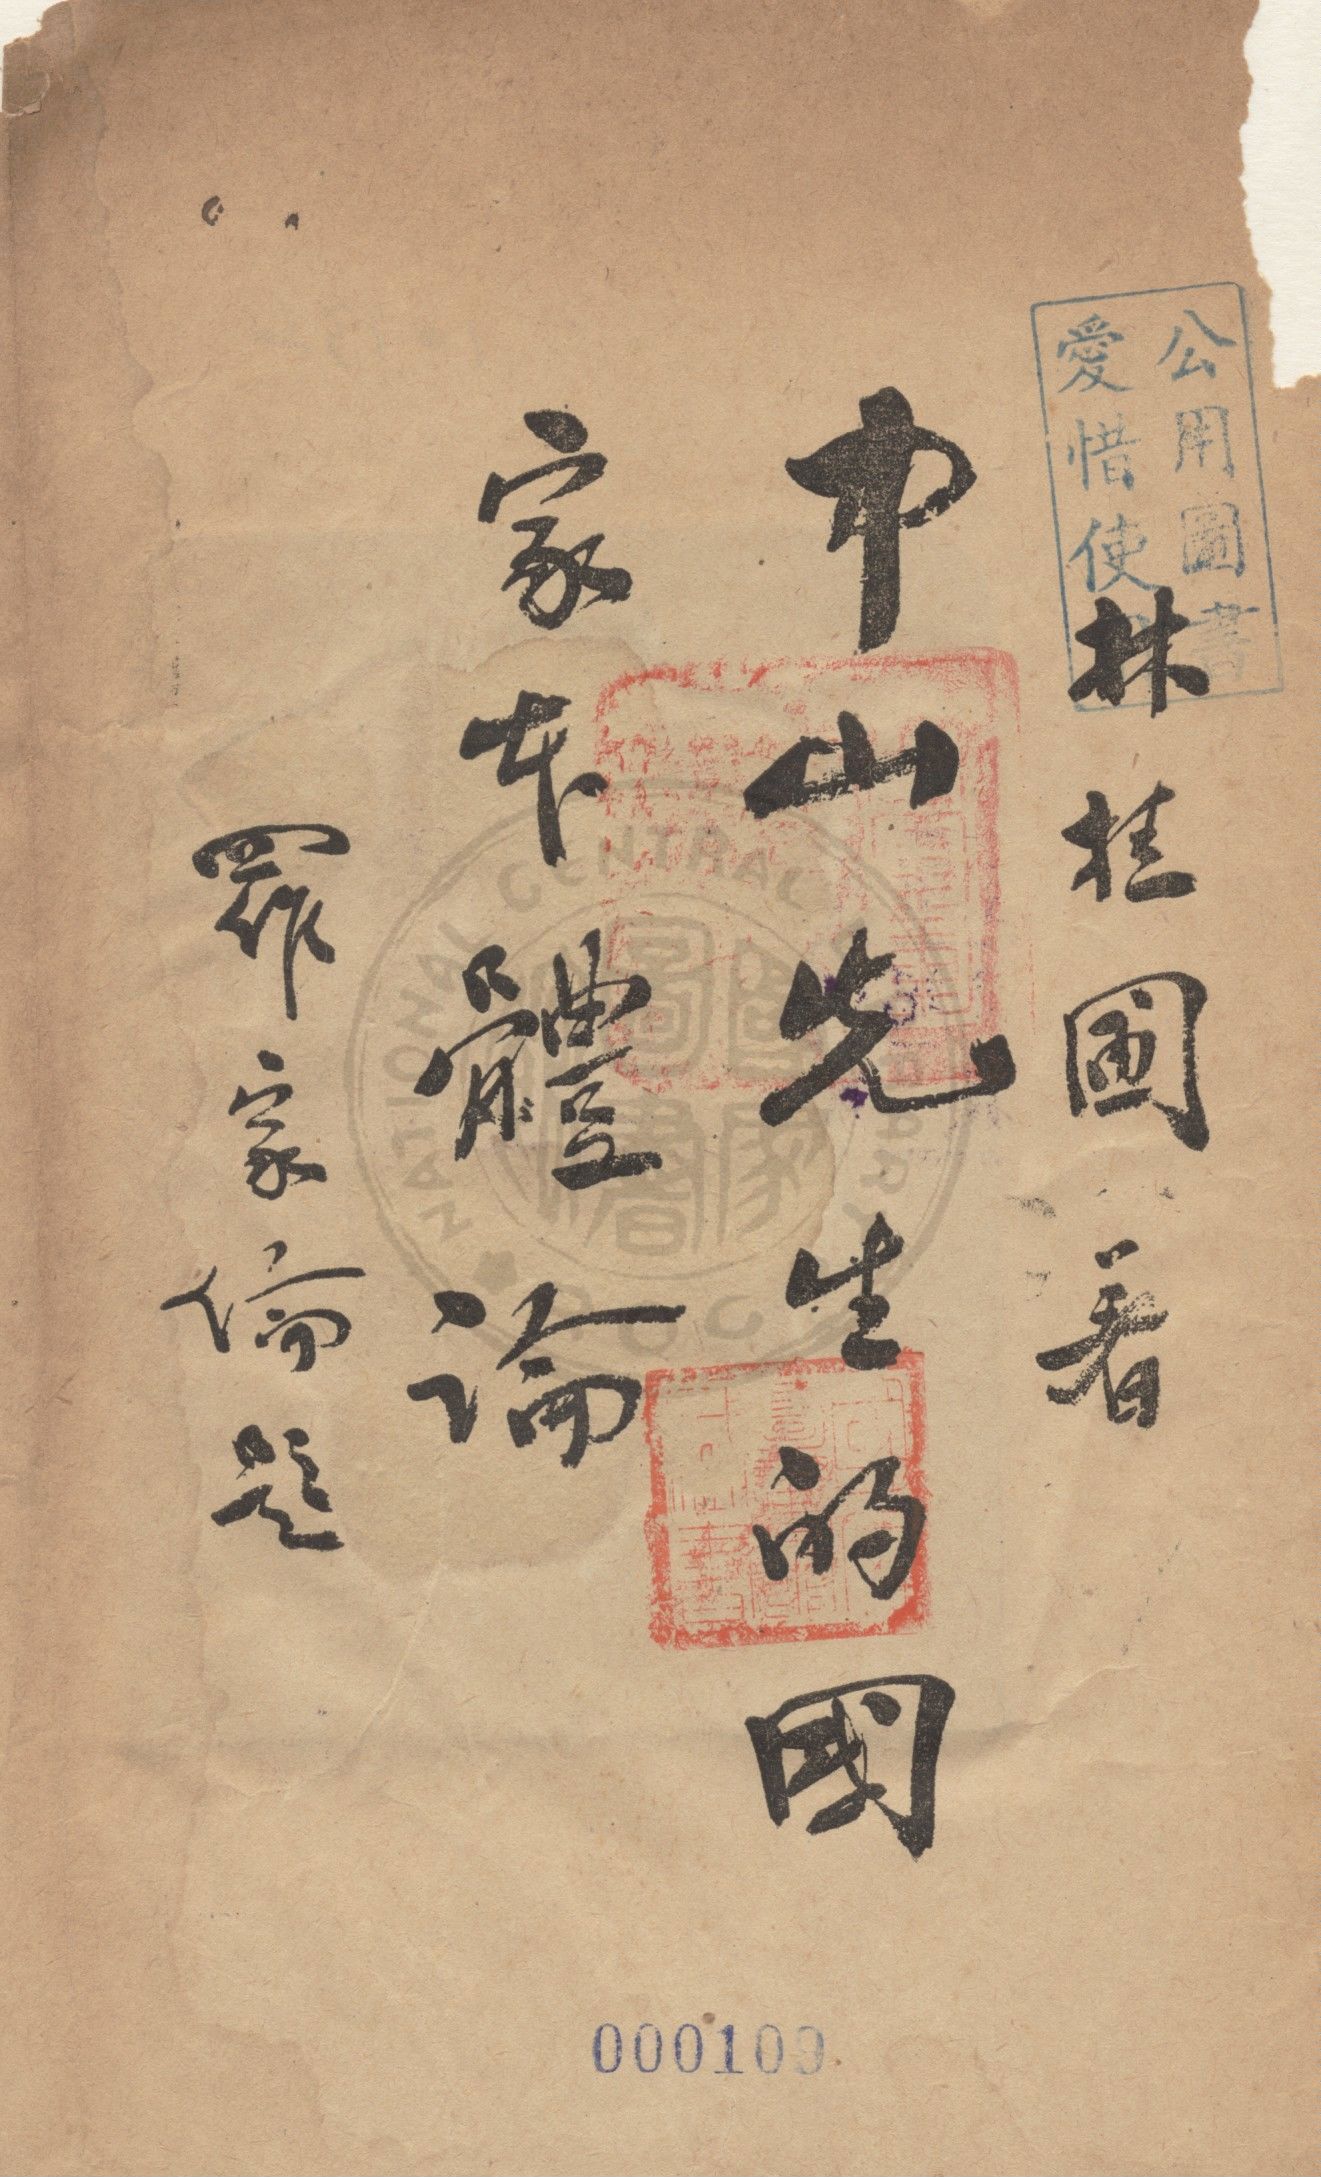 公用圖書
愛惜使
林桂圃著
中山先生的國
家本體論
羅家倫題
NATIONAL CENTRAL LIBRARY
國家圖書
R.O.C.
000109